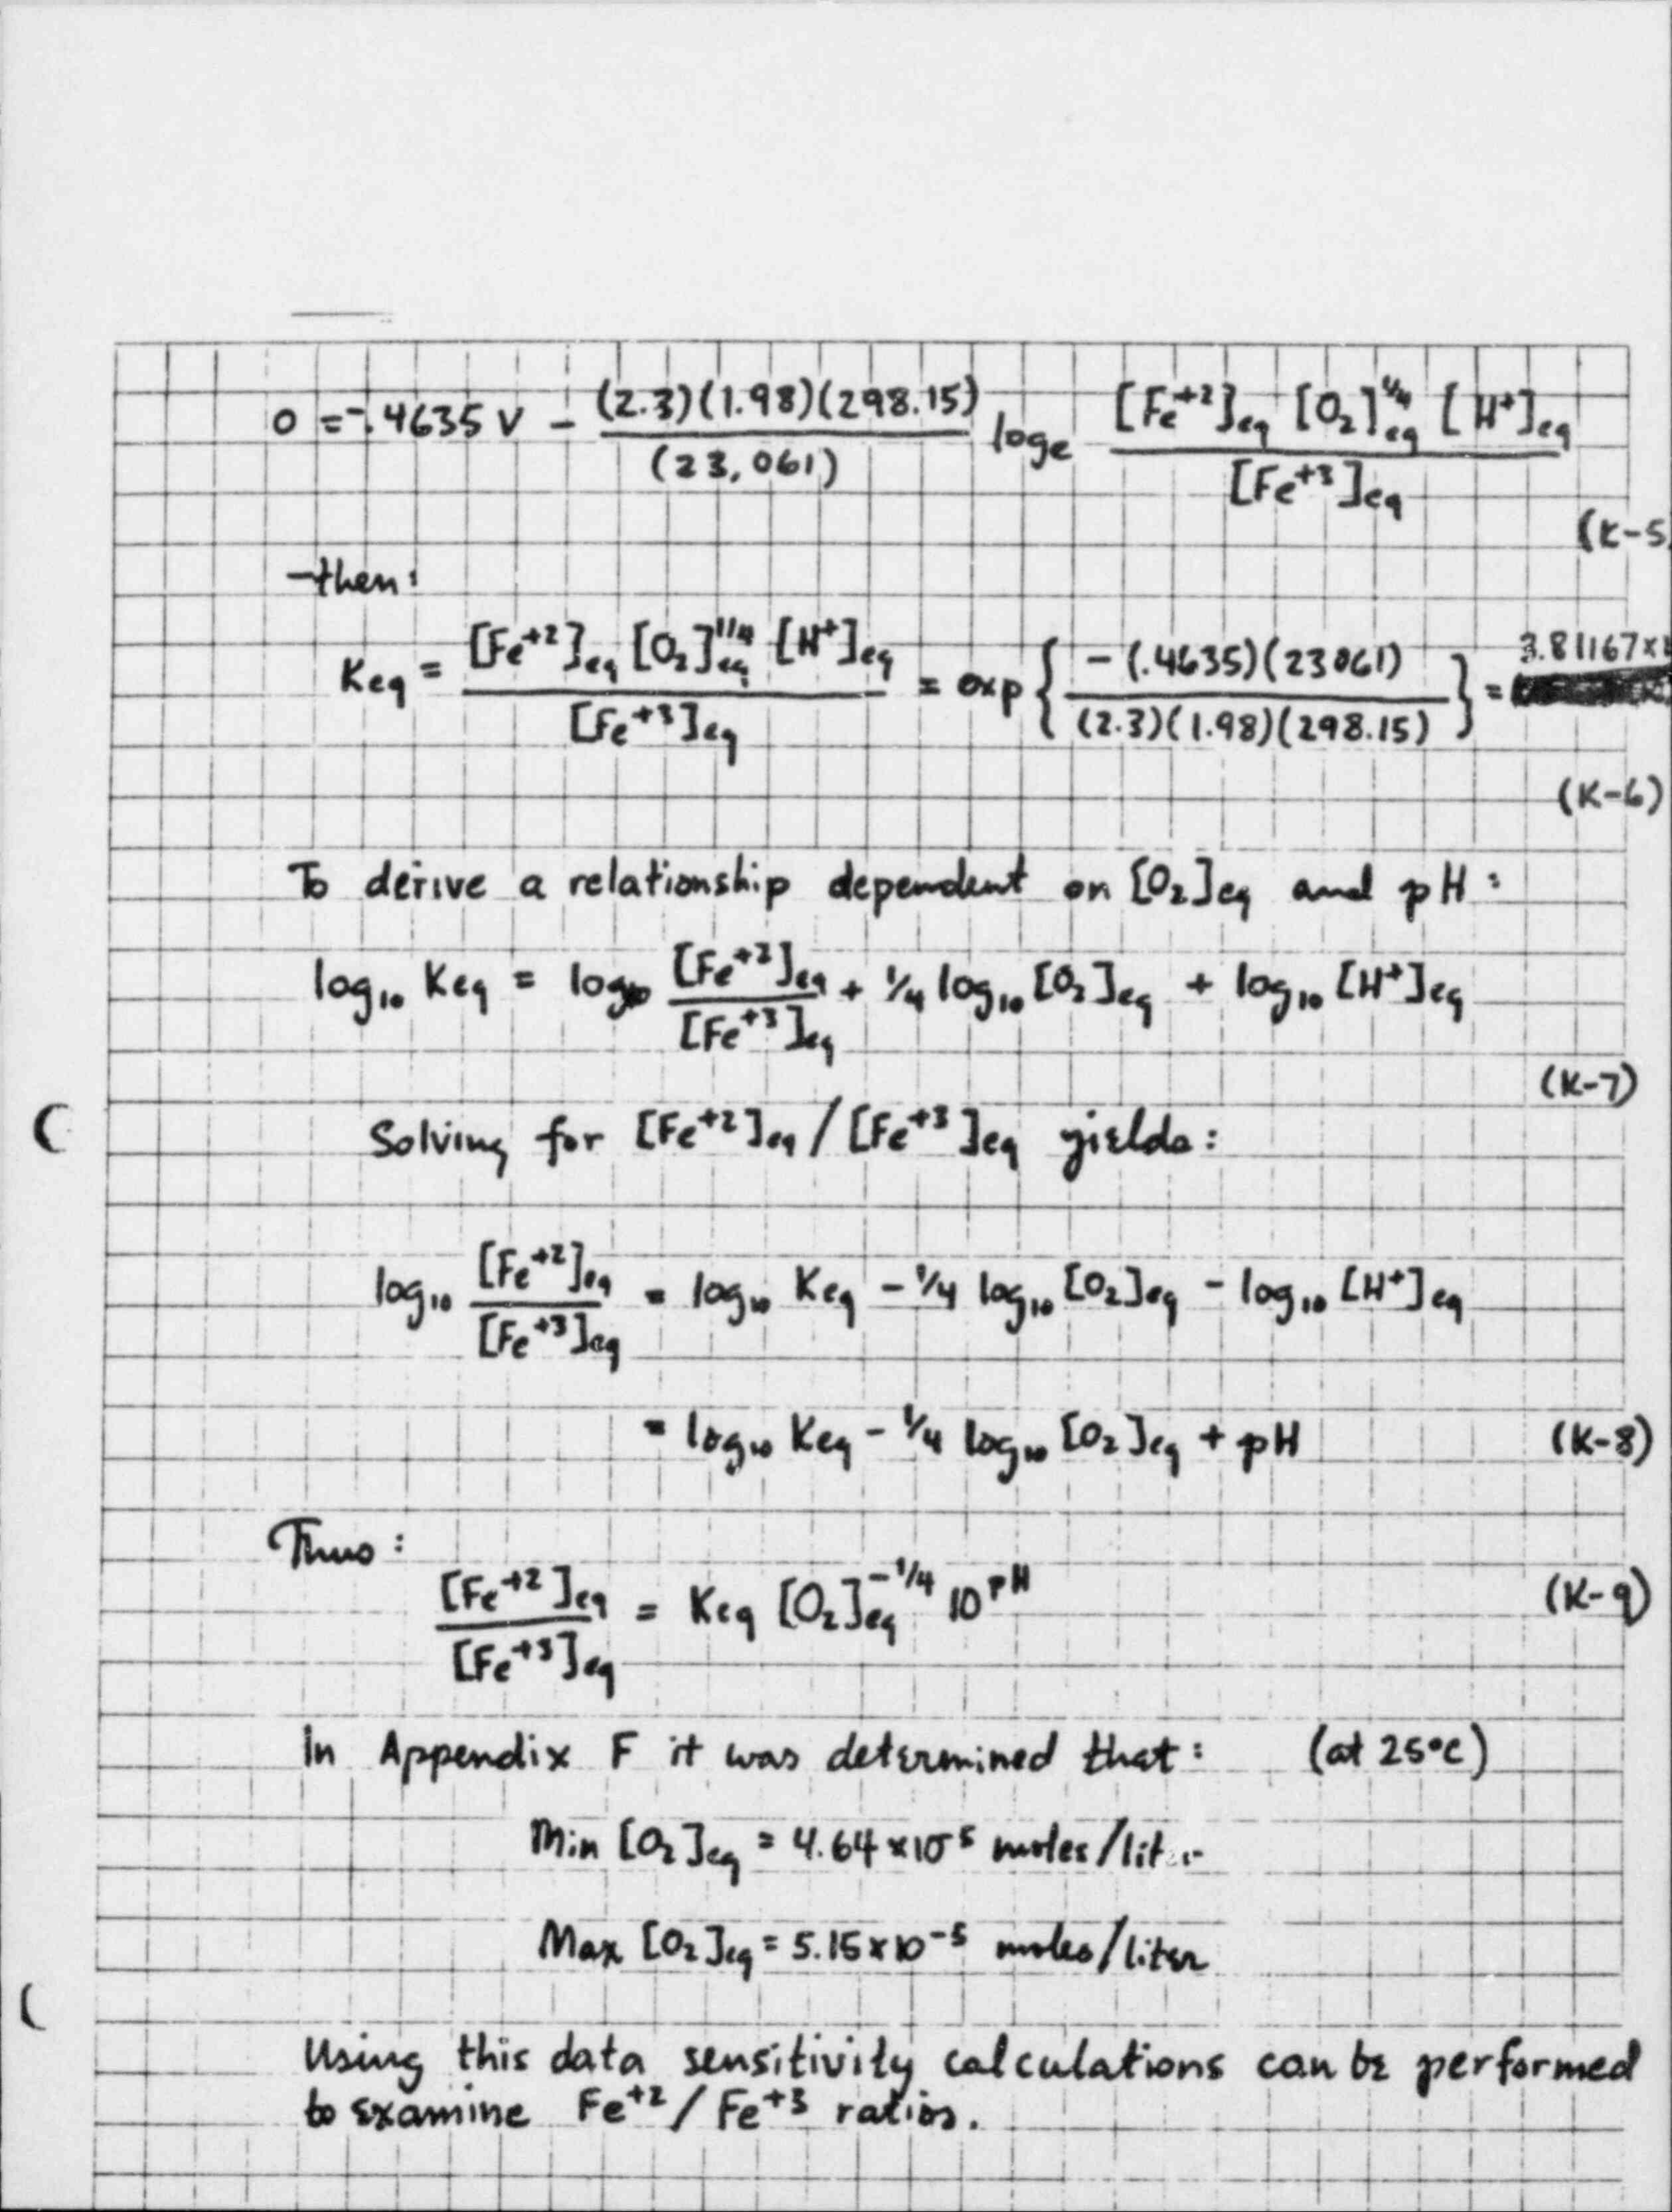 0 = -.4635 V - (2.3)(1.98)(298.15) / (23,061) loge [Fe+2]eq [O2]eq^1/4 [H+]eq / [Fe+3]eq
(K-5
then:
Keq = [Fe+2]eq [O2]eq^1/4 [H+]eq / [Fe+3]eq = exp { -(.4635)(23061) / (2.3)(1.98)(298.15) } = 3.81167×
(K-6)
To derive a relationship dependent on [O2]eq and pH:
log10 Keq = log10 [Fe+2]eq / [Fe+3]eq + 1/4 log10 [O2]eq + log10 [H+]eq
(K-7)
Solving for [Fe+2]eq / [Fe+3]eq yields:
log10 [Fe+2]eq / [Fe+3]eq = log10 Keq - 1/4 log10 [O2]eq - log10 [H+]eq
= log10 Keq - 1/4 log10 [O2]eq + pH (K-8)
Thus:
[Fe+2]eq / [Fe+3]eq = Keq [O2]eq^-1/4 10^pH (K-9)
In Appendix F it was determined that: (at 25°C)
Min [O2]eq = 4.64×10^-5 moles/liter
Max [O2]eq = 5.15×10^-5 moles/liter
Using this data sensitivity calculations can be performed
to examine Fe+2 / Fe+3 ratios.